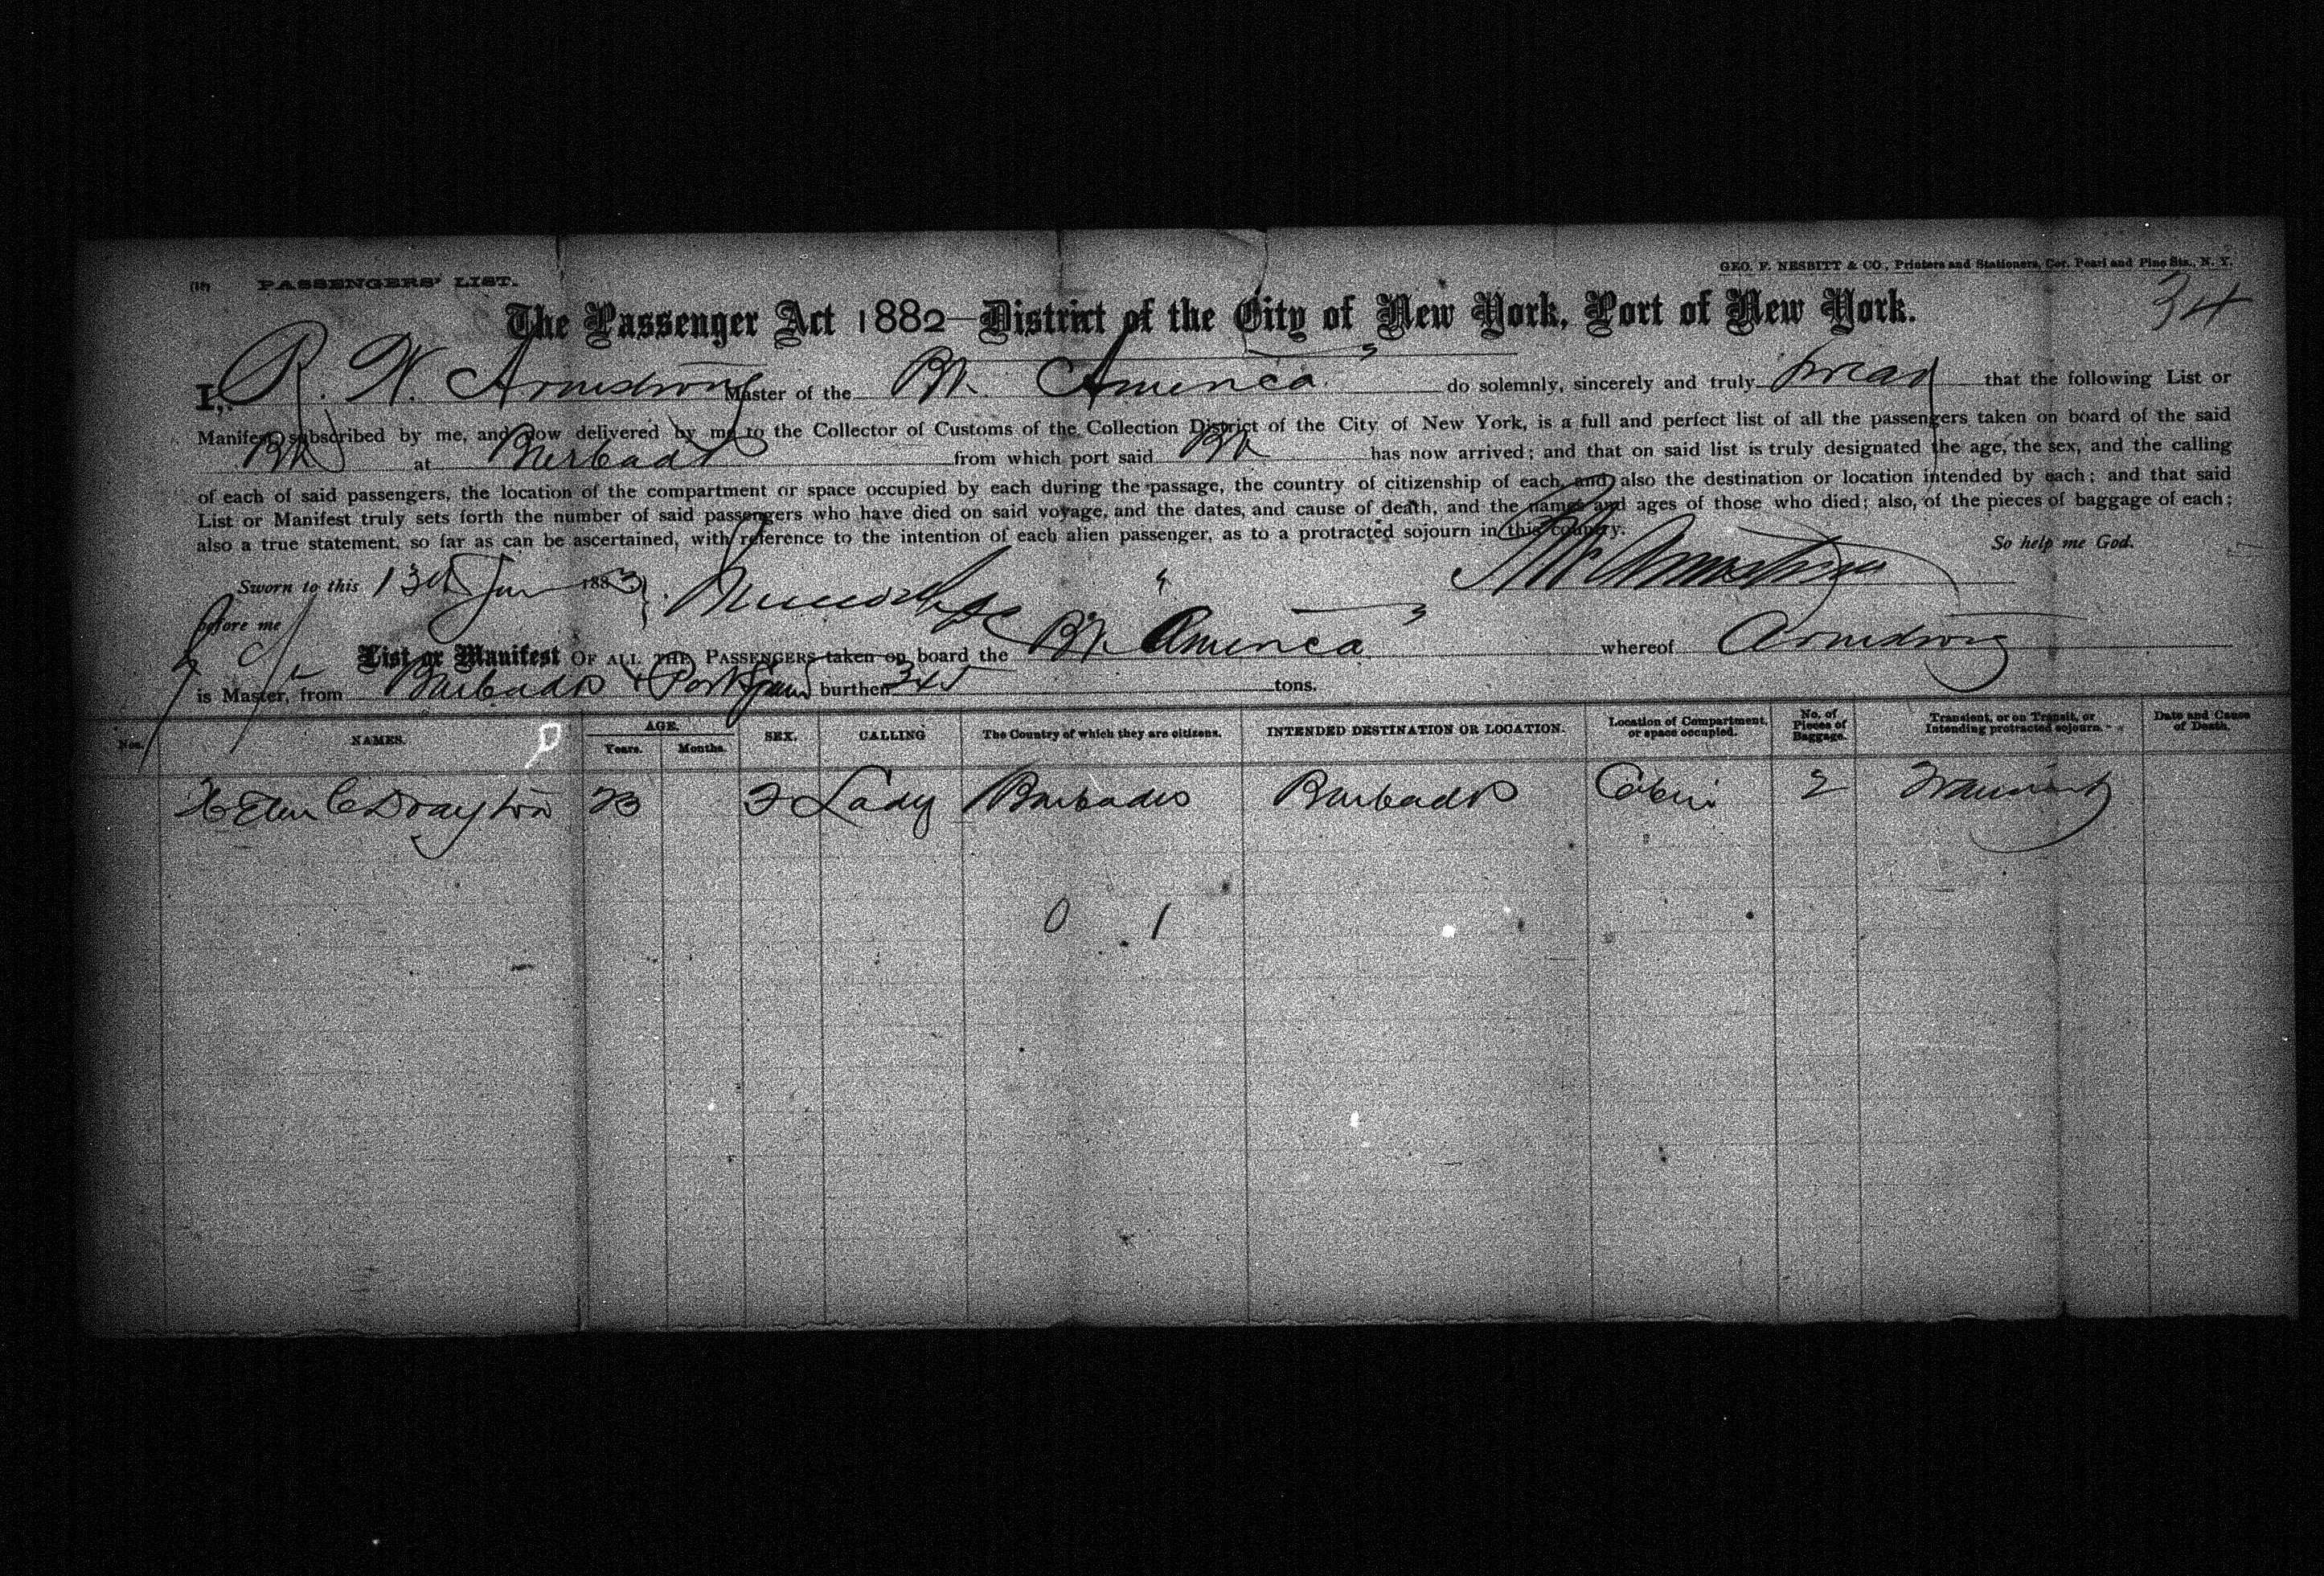 (18) PASSENGERS' LIST.
GEO. F. NESBITT & CO., Printers and Stationers, Cor. Pearl and Pine Sts., N. Y.
34
The Passenger Act 1882—District of the City of New York, Port of New York.
I, R. W. Armstrong Master of the Bk. America do solemnly, sincerely and truly swear that the following List or
Manifest, subscribed by me, and now delivered by me to the Collector of Customs of the Collection District of the City of New York, is a full and perfect list of all the passengers taken on board of the said
Bk at Barbados from which port said Bk has now arrived; and that on said list is truly designated the age, the sex, and the calling
of each of said passengers, the location of the compartment or space occupied by each during the passage, the country of citizenship of each, and also the destination or location intended by each; and that said
List or Manifest truly sets forth the number of said passengers who have died on said voyage, and the dates, and cause of death, and the names and ages of those who died; also, of the pieces of baggage of each;
also a true statement, so far as can be ascertained, with reference to the intention of each alien passenger, as to a protracted sojourn in this country. So help me God.
Sworn to this 13th 1883 Armstrong
before me
List or Manifest OF ALL THE PASSENGERS taken on board the Bk. America whereof Armstrong
is Master, from Barbados & Port Spain burthen 345 tons.
Nos. NAMES. AGE. Years. Months. SEX. CALLING The Country of which they are citizens. INTENDED DESTINATION OR LOCATION. Location of Compartment, or space occupied. No. of Pieces of Baggage. Transient, or on Transit, or Intending protracted sojourn. Date and Cause of Death.
Ellen C Drayton 23 F Lady Barbados Barbados Cabin 2 Transient
0 1